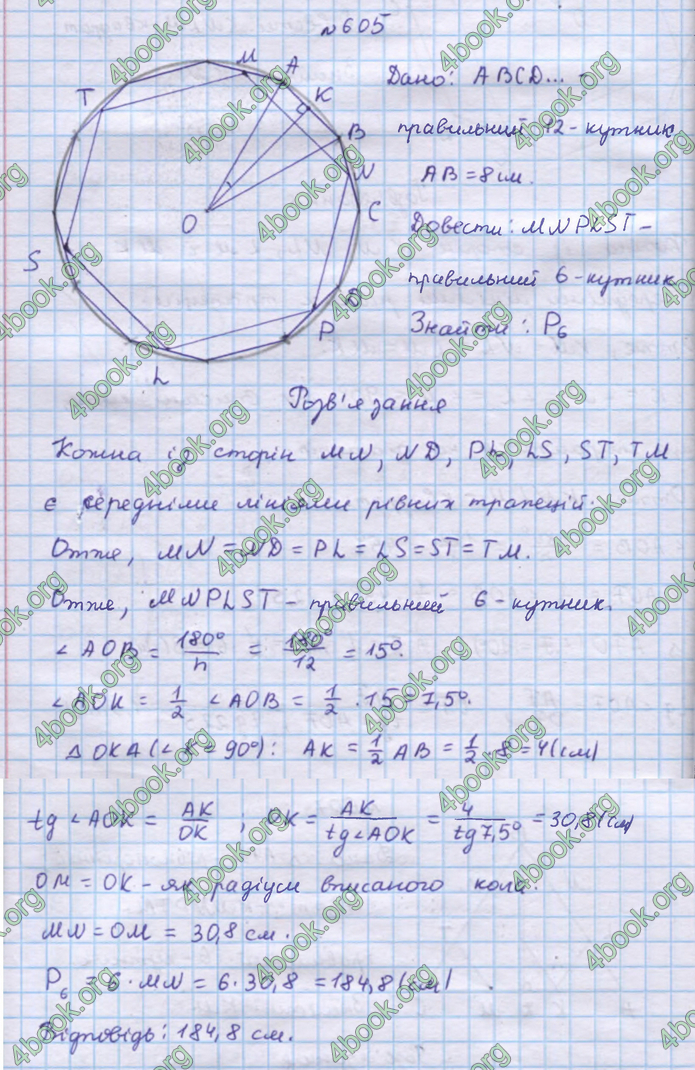 №605
M A
T K
Дано: ABCD... -
B
правильний 12-кутник
N
AB = 8 см.
O C
Довести: MNPLST -
S
правильний 6-кутник
P
Знайти: P₆
L
Розв'язання
Кожна із сторін MN, ND, PL, LS, ST, TM
є середніми лініями рівних трапецій.
Отже, MN = ND = PL = LS = ST = TM.
Отже, MNPLST - правильний 6-кутник.
∠AOB = 180°/n = 180°/12 = 15°.
∠AOK = 1/2 ∠AOB = 1/2 · 15 = 7,5°.
△OKA (∠K = 90°): AK = 1/2 AB = 1/2 · 8 = 4 (см)
tg ∠AOK = AK/OK ; OK = AK/tg∠AOK = 4/tg7,5° = 30,8 (см)
OM = OK - як радіуси вписаного кола.
MN = OM = 30,8 см.
P₆ = 6 · MN = 6 · 30,8 = 184,8 (см)
Відповідь: 184,8 см.
4book.org